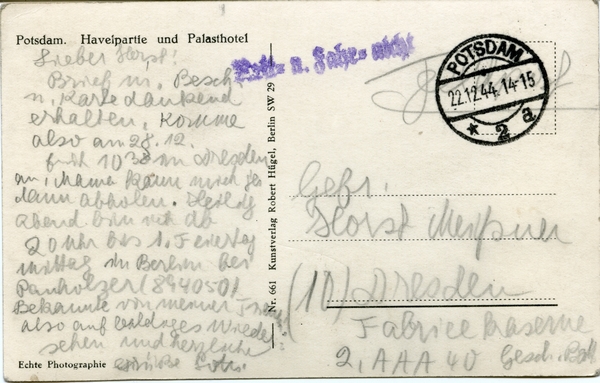 Potsdam. Havelpartie und Palasthotel
Lieber Horst!
Brief m. Besch
u. Karte dankend
erhalten. Komme
also am 28.12.
früh 10 38 in Dresden
an, Mama kann mich ja
dann abholen. Heilig
abend bin ich ab
20 Uhr bis 1. Feiertag
mittag in Berlin bei
Panholzer (894050)
Bekannte von meiner
also auf baldiges Wieder
sehen und herzliche
Grüße
Echte Photographie
Nr. 661 Kunstverlag Robert Hügel, Berlin SW 29
POTSDAM
22.12.44.14-15
* 2 a
Gefr.
Horst Meißner
(10) Dresden
2. AAA 40